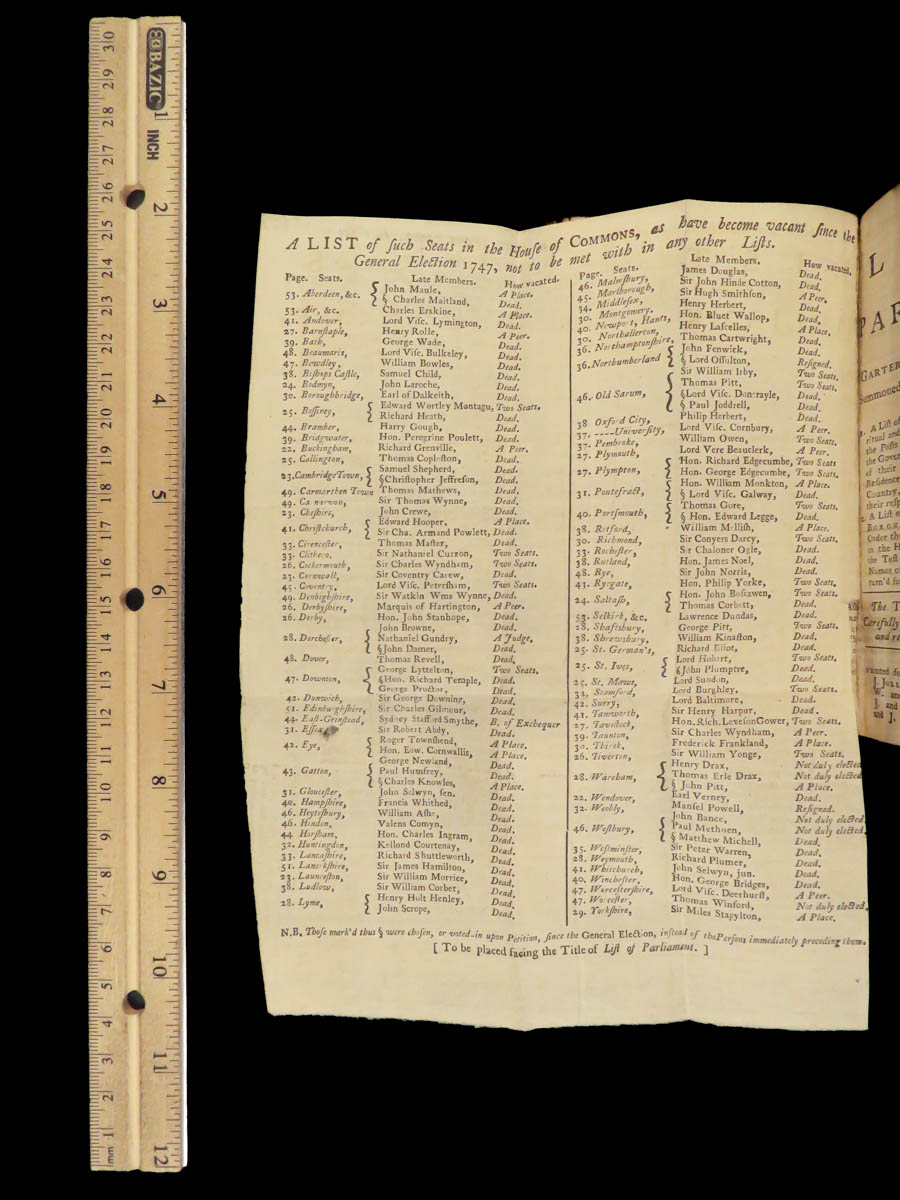 A LIST of ſuch Seats in the Houſe of COMMONS, as have become vacant ſince the
General Election 1747, not to be met with in any other Liſts.
Page. Seats. Late Members. How vacated.
53. Aberdeen, &c. John Maule, A Place.
§ Charles Maitland, Dead.
53. Air, &c. Charles Erskine, A Place.
41. Andover, Lord Viſc. Lymington, Dead.
27. Barnſtaple, Henry Rolle, A Peer.
39. Bath, George Wade, Dead.
48. Beaumaris, Lord Viſc. Bulkeley, Dead.
47. Bewdley, William Bowles, Dead.
38. Biſhops Caſtle, Samuel Child, Dead.
24. Bodmyn, John Laroche, Dead.
30. Boroughbridge, Earl of Dalkeith, Dead.
25. Boſſiney, Edward Wortley Montagu, Two Seats.
Richard Heath, Dead.
44. Bramber, Harry Gough, Dead.
39. Bridgwater, Hon. Peregrine Poulett, Dead.
22. Buckingham, Richard Grenville, A Peer.
25. Callington, Thomas Copleſton, Dead.
23. Cambridge Town, Samuel Shepherd, Dead.
§ Chriſtopher Jeffreſon, Dead.
49. Carmarthen Town Thomas Mathews, Dead.
49. Carnarvon, Sir Thomas Wynne, Dead.
23. Cheſhire, John Crewe, Dead.
41. Chriſtchurch, Edward Hooper, A Place.
Sir Cha. Armand Powlett, Dead.
33. Cirenceſter, Thomas Maſter, Dead.
33. Clithero, Sir Nathaniel Curzon, Two Seats.
26. Cockermouth, Sir Charles Wyndham, Two Seats.
23. Cornwall, Sir Coventry Carew, Dead.
45. Coventry, Lord Viſc. Peterſham, Two Seats.
49. Denbighſhire, Sir Watkin Wms Wynne, Dead.
26. Derbyſhire, Marquis of Hartington, A Peer.
26. Derby, Hon. John Stanhope, Dead.
John Browne, Dead.
28. Dorcheſter, Nathaniel Gundry, A Judge.
§ John Damer, Dead.
48. Dover, Thomas Revell, Dead.
George Lyttelton, Two Seats.
47. Downton, § Hon. Richard Temple, Dead.
George Proctor, Dead.
42. Dunwich, Sir George Downing, Dead.
51. Edinburghſhire, Sir Charles Gilmour, Dead.
44. Eaſt-Grinſtead, Sydney Stafford Smythe, B. of Exchequer
31. Eſſex, Sir Robert Abdy, Dead.
42. Eye, Roger Townſhend, A Place.
Hon. Edw. Cornwallis, A Place.
George Newland, Dead.
43. Gatton, Paul Humfrey, Dead.
§ Charles Knowles, A Place.
31. Glouceſter, John Selwyn, ſen. Dead.
40. Hampſhire, Francis Whithed, Dead.
46. Heyteſbury, William Aſhe, Dead.
46. Hindon, Valens Comyn, Dead.
44. Horſham, Hon. Charles Ingram, Dead.
32. Huntingdon, Kellond Courtenay, Dead.
33. Lancaſhire, Richard Shuttleworth, Dead.
51. Lanerkſhire, Sir James Hamilton, Dead.
23. Launceſton, Sir William Morrice, Dead.
38. Ludlow, Sir William Corbet, Dead.
28. Lyme, Henry Holt Henley, Dead.
John Scrope, Dead.
Page. Seats. Late Members. How vacated.
46. Malmſbury, James Douglas, Dead.
45. Marlborough, Sir John Hinde Cotton, Dead.
34. Middleſex, Sir Hugh Smithſon, A Peer.
30. Montgomery, Henry Herbert, Dead.
40. Newport, Hants, Hon. Bluet Wallop, Dead.
30. Northallerton, Henry Laſcelles, A Place.
36. Northamptonſhire, Thomas Cartwright, Dead.
36. Northumberland John Fenwick, Dead.
§ Lord Oſſulton, Reſigned.
Sir William Irby, Two Seats.
46. Old Sarum, Thomas Pitt, Two Seats.
§ Lord Viſc. Donerayle, Dead.
§ Paul Joddrell, Dead.
38. Oxford City, Philip Herbert, Dead.
37. ----Univerſity, Lord Viſc. Cornbury, A Peer.
37. Pembroke, William Owen, Two Seats.
27. Plymouth, Lord Vere Beauclerk, A Peer.
27. Plympton, Hon. Richard Edgecumbe, Two Seats
Hon. George Edgecumbe, Two Seats.
31. Pontefract, Hon. William Monkton, A Place.
§ Lord Viſc. Galway, Dead.
40. Portſmouth, Thomas Gore, Two Seats.
§ Hon. Edward Legge, Dead.
38. Retford, William Melliſh, A Place.
30. Richmond, Sir Conyers Darcy, Two Seats.
33. Rocheſter, Sir Chaloner Ogle, Dead.
38. Rutland, Hon. James Noel, Dead.
48. Rye, Sir John Norris, Dead.
43. Ryegate, Hon. Philip Yorke, Two Seats.
24. Saltaſh, Hon. John Boſcawen, Two Seats.
Thomas Corbett, Dead.
53. Selkirk, &c. Lawrence Dundas, Dead.
28. Shaftſbury, George Pitt, Two Seats.
38. Shrewſbury, William Kinaſton, Dead.
25. St. German's, Richard Eliot, Dead.
25. St. Ives, Lord Hobart, Two Seats.
§ John Plumptre, Dead.
25. St. Maws, Lord Sundon, Dead.
32. Stamford, Lord Burghley, Two Seats.
42. Surry, Lord Baltimore, Dead.
41. Tamworth, Sir Henry Harpur, Dead.
27. Taviſtock, Hon. Rich. Leveſon Gower, Two Seats.
39. Taunton, Sir Charles Wyndham, A Peer.
30. Thirſk, Frederick Frankland, A Place.
26. Tiverton, Sir William Yonge, Two Seats.
Henry Drax, Not duly elected
28. Wareham, Thomas Erle Drax, Not duly elected
§ John Pitt, A Place.
22. Wendover, Earl Verney, Dead.
32. Weobly, Manſel Powell, Reſigned.
John Bance, Not duly elected
46. Weſtbury, Paul Methuen, Not duly elected.
§ Matthew Michell, Dead.
35. Weſtminſter, Sir Peter Warren, Dead.
28. Weymouth, Richard Plumer, Dead.
41. Whitchurch, John Selwyn, jun. Dead.
40. Wincheſter, Hon. George Bridges, Dead.
47. Worceſterſhire, Lord Viſc. Deerhurſt, A Peer.
47. Worceſter, Thomas Winford, Not duly elected.
29. Yorkſhire, Sir Miles Stapylton, A Place.
N.B. Thoſe mark'd thus § were choſen, or voted-in upon Petition, ſince the General Election, inſtead of the Perſons immediately preceding them.
[ To be placed facing the Title of Liſt of Parliament. ]
L
PAR
GARTER
Summoned
A Liſt of
ritual and
the Poſts
the Gover
of their
Reſidence
Country,
their reſp
2. A Liſt o
Order th
in the H
the Teſt
Names o
turn'd fo
The T
Carefully
and re
J. and
BAZIC
INCH
1 2 3 4 5 6 7 8 9 10 11 12
30 29 28 27 26 25 24 23 22 21 20 19 18 17 16 15 14 13 12 11 10 9 8 7 6 5 4 3 2 1 mm